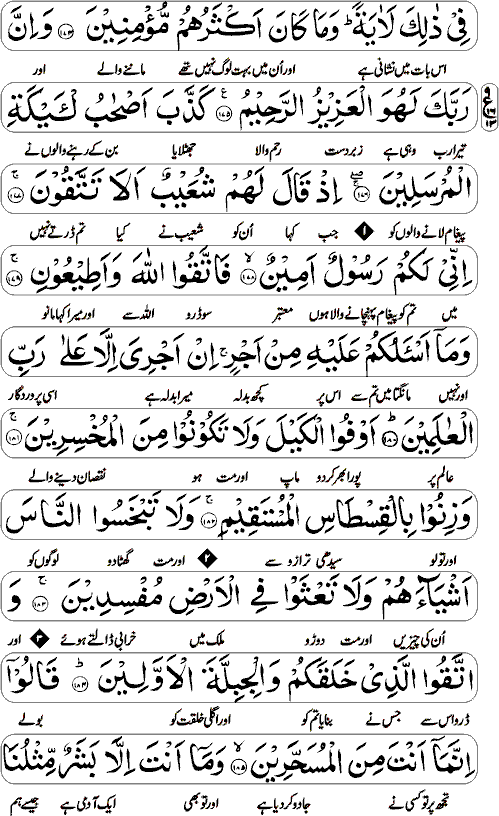 فِىْ ذٰلِكَ لَاٰيَةً ؕ وَمَا كَانَ اَكْثَرُهُمْ مُّؤْمِنِيْنَ ۝۱۷۴ وَاِنَّ
اس بات میں نشانی ہے اور اُن میں بہت لوگ نہیں تھے ماننے والے اور
رَبَّكَ لَهُوَ الْعَزِيْزُ الرَّحِيْمُ ۝۱۷۵ كَذَّبَ اَصْحٰبُ لْـَٔيْكَةِ
تیرا رب وہی ہے زبردست رحم والا جھٹلایا بن کے رہنے والوں نے
الْمُرْسَلِيْنَ ۝۱۷۶ اِذْ قَالَ لَهُمْ شُعَيْبٌ اَلَا تَتَّقُوْنَ ۝۱۷۷
پیغام لانے والوں کو ۱ جب کہا اُن کو شعیب نے کیا تم ڈرتے نہیں
اِنِّىْ لَكُمْ رَسُوْلٌ اَمِيْنٌ ۝۱۷۸ فَاتَّقُوا اللّٰهَ وَاَطِيْعُوْنِ ۝۱۷۹
میں تم کو پیغام پہنچانے والا ہوں معتبر سو ڈرو اللہ سے اور میرا کہا مانو
وَمَآ اَسْـَٔلُكُمْ عَلَيْهِ مِنْ اَجْرٍ ۚ اِنْ اَجْرِىَ اِلَّا عَلٰى رَبِّ
اور نہیں مانگتا میں تم سے اس پر کچھ بدلہ میرا بدلہ ہے اسی پروردگار
الْعٰلَمِيْنَ ۝۱۸۰ اَوْفُوا الْكَيْلَ وَلَا تَكُوْنُوْا مِنَ الْمُخْسِرِيْنَ ۝۱۸۱
عالم پر پورا بھر کر دو ماپ اور مت ہو نقصان دینے والے
وَزِنُوْا بِالْقِسْطَاسِ الْمُسْتَقِيْمِ ۝۱۸۲ وَلَا تَبْخَسُوا النَّاسَ
اور تولو سیدھی ترازو سے ۲ اور مت گھٹا دو لوگوں کو
اَشْيَآءَهُمْ وَلَا تَعْثَوْا فِى الْاَرْضِ مُفْسِدِيْنَ ۝۱۸۳ وَ
اُن کی چیزیں اور مت دوڑو ملک میں خرابی ڈالتے ہوئے ۳ اور
اتَّقُوا الَّذِىْ خَلَقَكُمْ وَالْجِبِلَّةَ الْاَوَّلِيْنَ ۝۱۸۴ قَالُوْٓا
ڈرو اس سے جس نے بنایا تم کو اور اگلی خلقت کو بولے
اِنَّمَآ اَنْتَ مِنَ الْمُسَحَّرِيْنَ ۝۱۸۵ وَمَآ اَنْتَ اِلَّا بَشَرٌ مِّثْلُنَا
تجھ پر تو کسی نے جادو کر دیا ہے اور تو بھی ایک آدمی ہے جیسے ہم